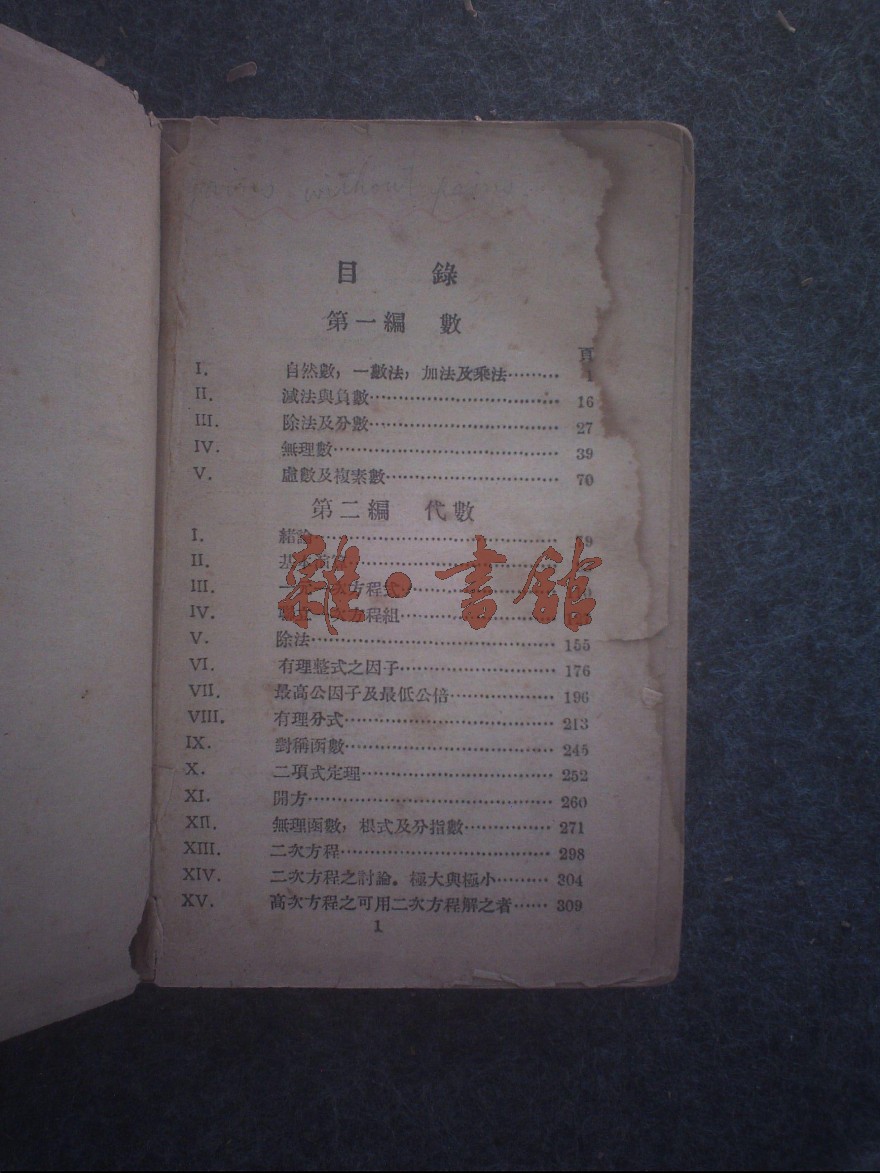 gains without pains.
目 錄
第一編 數
頁
I. 自然數，一數法，加法及乘法……… 1
II. 減法與負數……………………………… 16
III. 除法及分數……………………………… 27
IV. 無理數…………………………………… 39
V. 虛數及複素數…………………………… 70
第二編 代數
I. 緒論……………………………………
II. ……………………………………
雜·書館
III. 一次方程式……………………………
IV. 一次方程組……………………………
V. 除法……………………………………… 155
VI. 有理整式之因子………………………… 176
VII. 最高公因子及最低公倍……………… 196
VIII. 有理分式………………………………… 213
IX. 對稱函數………………………………… 245
X. 二項式定理……………………………… 252
XI. 開方……………………………………… 260
XII. 無理函數，根式及分指數…………… 271
XIII. 二次方程………………………………… 298
XIV. 二次方程之討論。極大與極小……… 304
XV. 高次方程之可用二次方程解之者…… 309
1